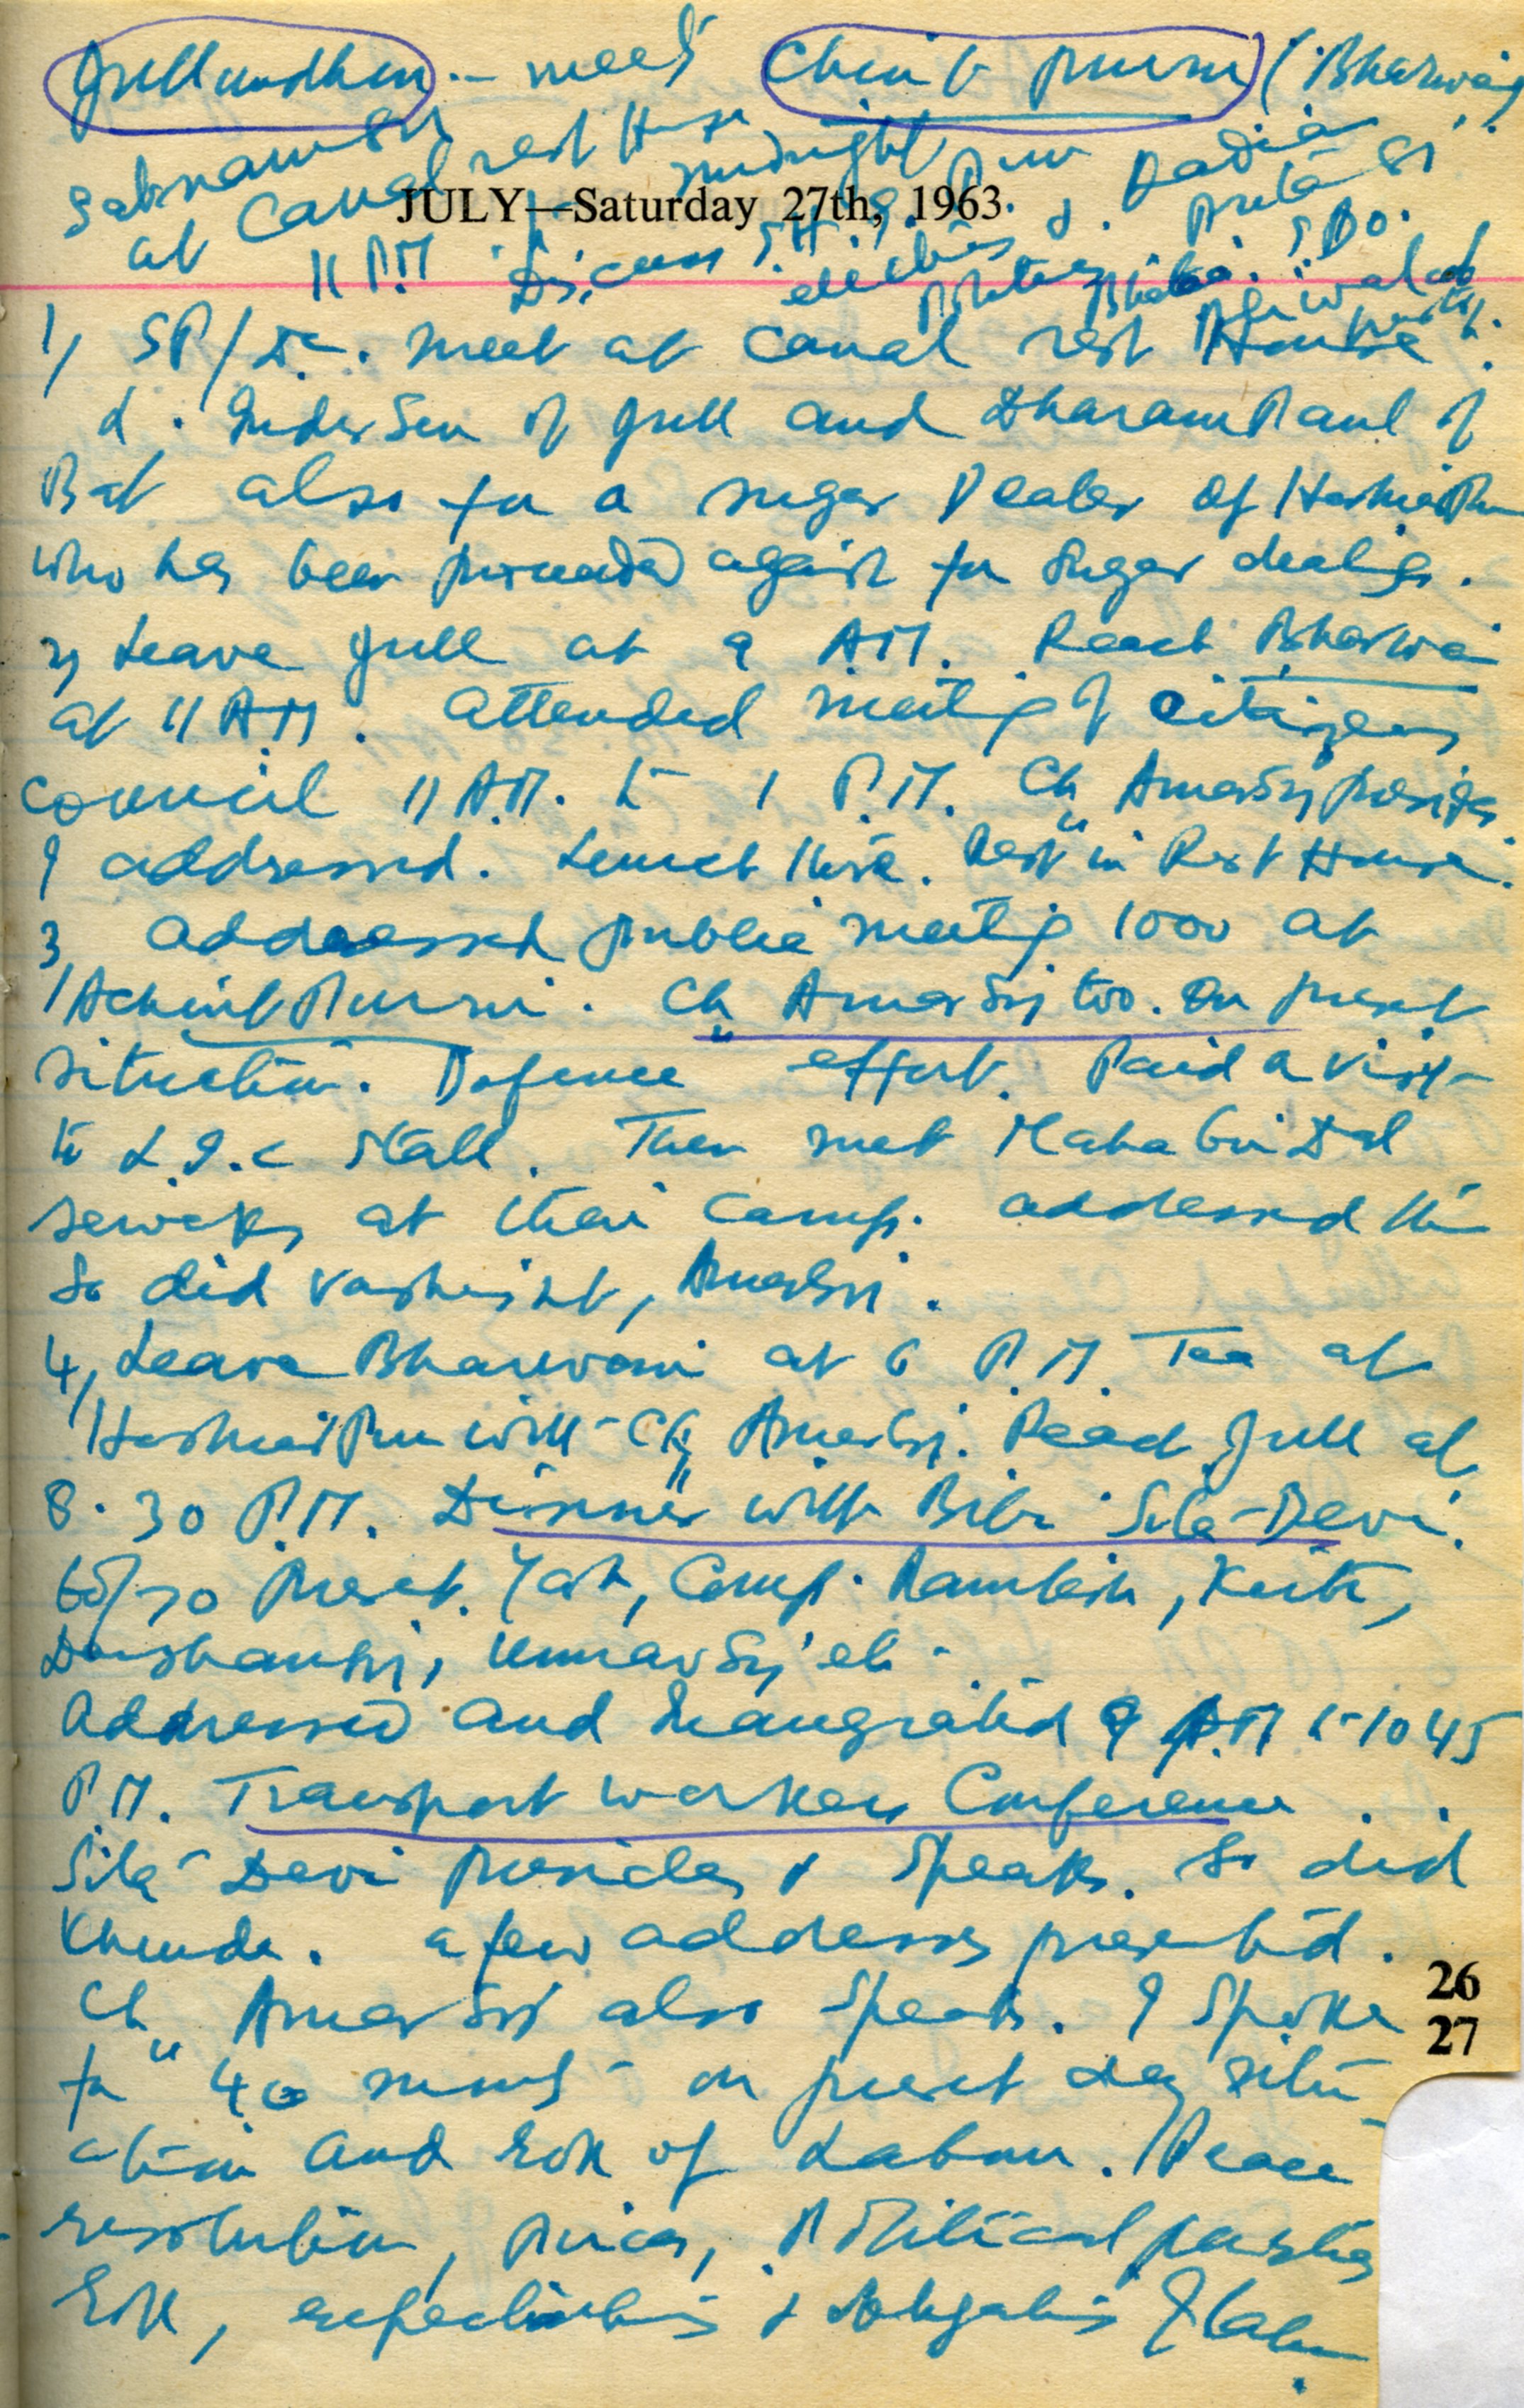 Jullundhur - meet Chint purni (Bharwain
Satnam Singh
at Canal rest House midnight
JULY—Saturday 27th, 1963.
11 P.M. Discuss
elections
1) SP/Dc. meet at Canal rest House
d. Inder Sen of Jull and Dharam Paul of
Bat also for a sugar Dealer of HoshiarPur
who has been proceeded against for sugar dealings.
2) Leave Jull at 9 AM. Reach Bharwain
at 11 AM. Attended meeting of citizens
council 11 AM. to 1 P.M. Ch Amar Singh presides
I addressed. Lunch there. Rest in Rest House.
3) Addressed public meeting 1000 at
Achint Purni. Ch Amar Singh too. On present
situation. Defence effort. Paid a visit
to L.I.C Stall. Then met Mahabir Dal
sewaks at their camp. Addressed them
So did Vashisht, Amar Singh.
4) Leave Bharwain at 6 P.M. Tea at
HoshiarPur with Ch Amar Singh. Reach Jull at
8.30 P.M. Dinner with Bibi Sita Devi.
60/70 Present. Yash, Comp. Ram Kish,
Darshan Singh, Umrao Singh etc.
Addressed and Inaugrated 9 P.M. to 10 45
P.M. Transport workers Conference.
Sita Devi presides & speaks. So did
Khunda. A few addresses presented.
26
Ch Amar Singh also speaks. I spoke
27
for 40 minutes on present day situ
ation and role of Labour. Peace
resolution, prices, Political parties
role, expectations & obligations of labour.